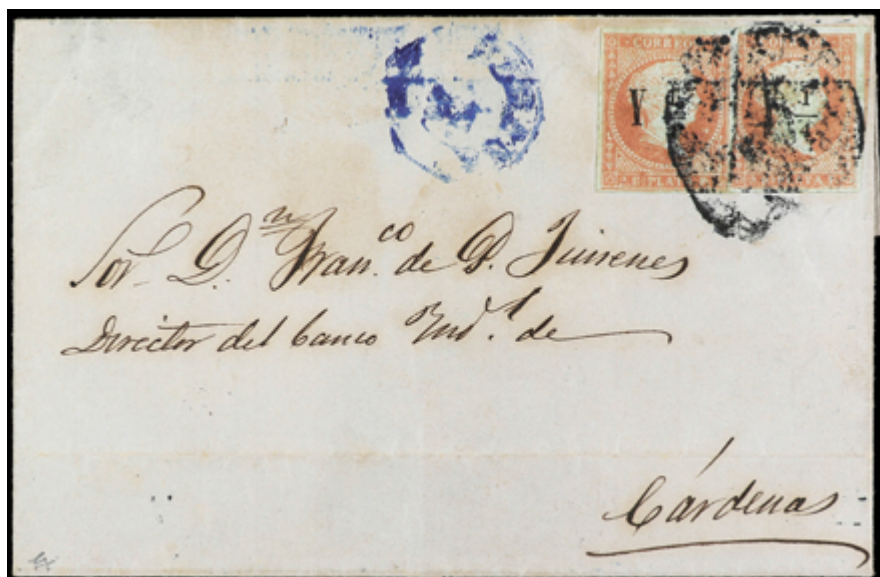 CORREOS
Y
Sor. D.n Fran.co de P. Jimenes
Director del banco Ind.l de
Cárdenas